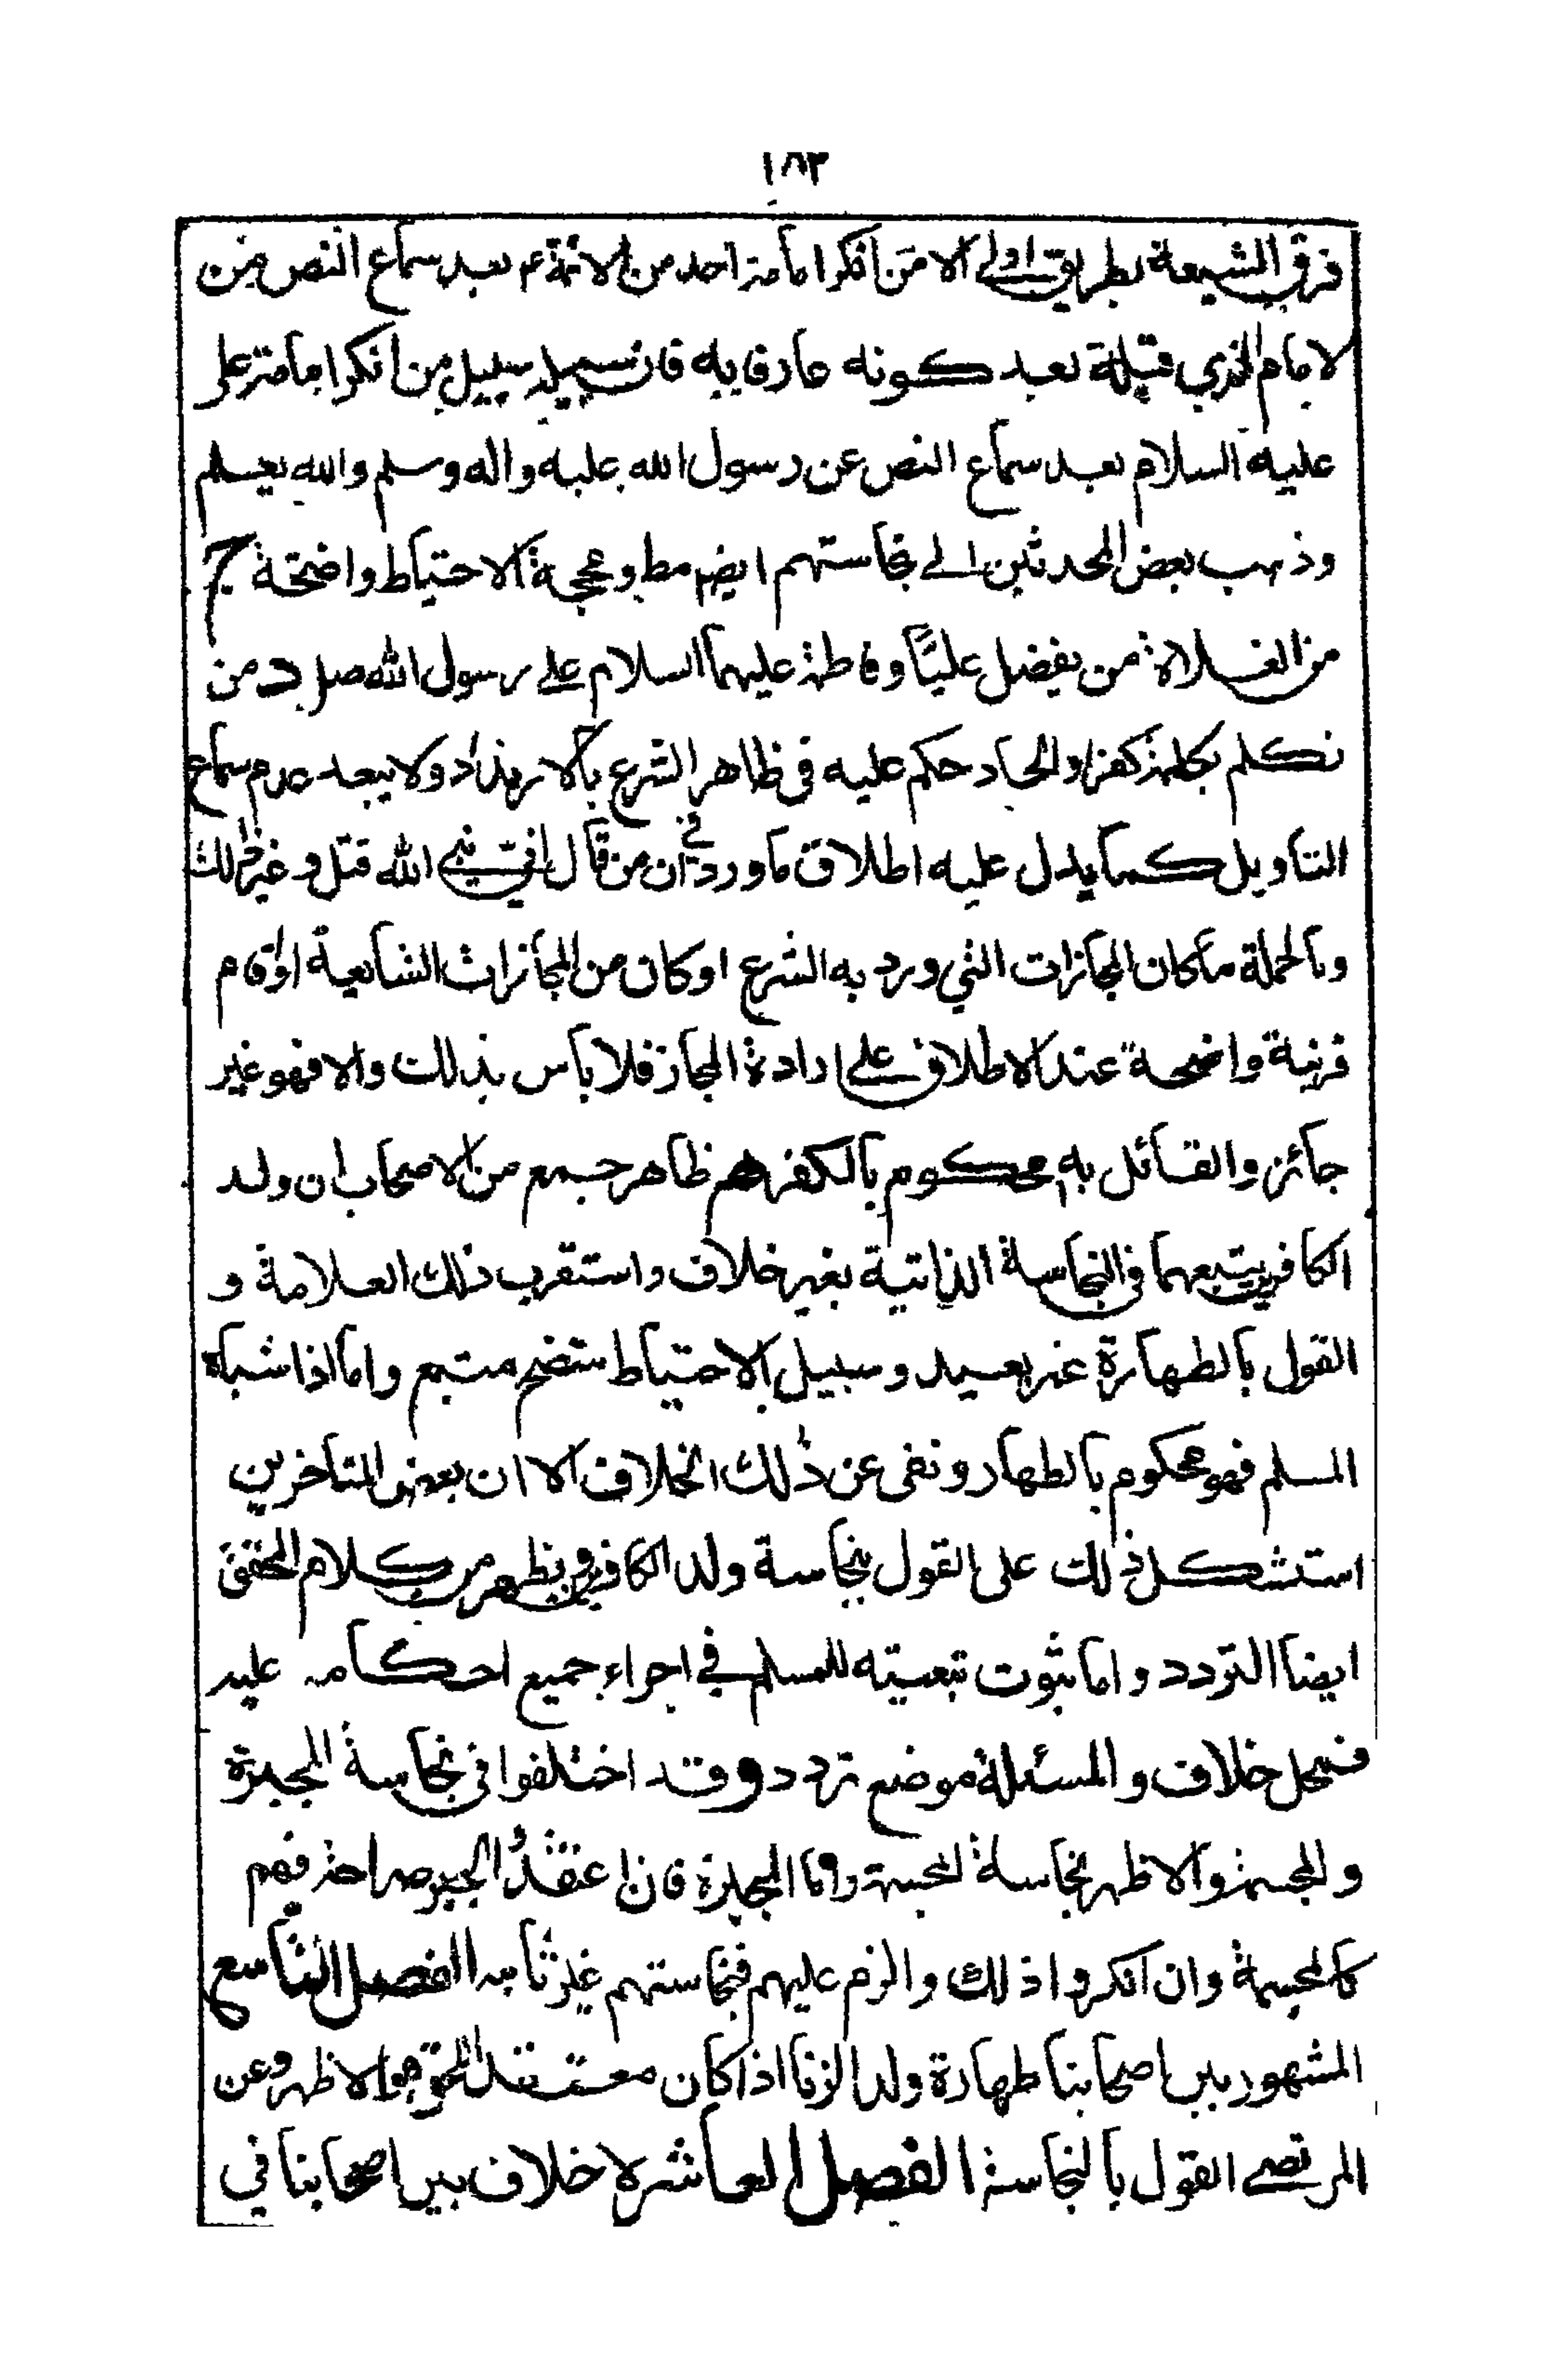 ١٨٣
فرق الشيعة بطريق اولى الا من انكر امامة احد من الائمة ع بعد سماع النص من
الامام الذي قبله بعد كونه عارفا به فان سبيله سبيل من انكر امامة علي
عليه السلام بعد سماع النص عن رسول الله عليه واله وسلم والله يعلم
وذهب بعض المحدثين الى نجاستهم ايضا مط وحجية الاحتياط واضحة ج
من الغلاة من يفضل عليًا وفاطمة عليهما السلام على رسول الله صل د من
تكلم بكلمة كفر او الحاد حكم عليه في ظاهر الشرع بالارتداد ولا يبعد عدم سماع
التاويل كما يدل عليه اطلاق ما ورد في ان من قال اني نبي الله قتل وغير ذلك
وبالجملة ما كان المجازات التي ورد به الشرع او كان من المجازات الشايعة او اقام
قرينة واضحة عند الاطلاق على ارادة المجاز فلا باس بذلك والا فهو غير
جائز والقائل به محكوم بالكفر هم ظاهر جمع من الاصحاب ان ولد
الكافرين يتبعهما في النجاسة الذاتية بغير خلاف واستقرب ذلك العلامة و
القول بالطهارة غير بعيد وسبيل الاحتياط ستضح متبع واما اذا شباه
المسلم فهو محكوم بالطهار ونفى عن ذلك الخلاف الا ان بعض المتاخرين
استشكل ذلك على القول بنجاسة ولد الكافرين ويظهر من كلام المحقق
ايضا التردد واما ثبوت تبعيته للمسلم في اجراء جميع احكامه عليه
فمحل خلاف والمسئلة موضع تردد و وقد اختلفوا في نجاسة المجبرة
والمجسمة والاظهر نجاسة المجسمة واما المجبرة فان اعتقدُوا الجبر صراحة فهم
كالمجسمة وان انكروا ذلك والزم عليهم فنجاستهم غير ثابتة الفصل التاسع
المشهور بين اصحابنا طهارة ولد الزنا اذا كان معتقد الحق وهو الاظهر وعن
المرتضى القول بالنجاسة الفصل العاشر لا خلاف بين اصحابنا في